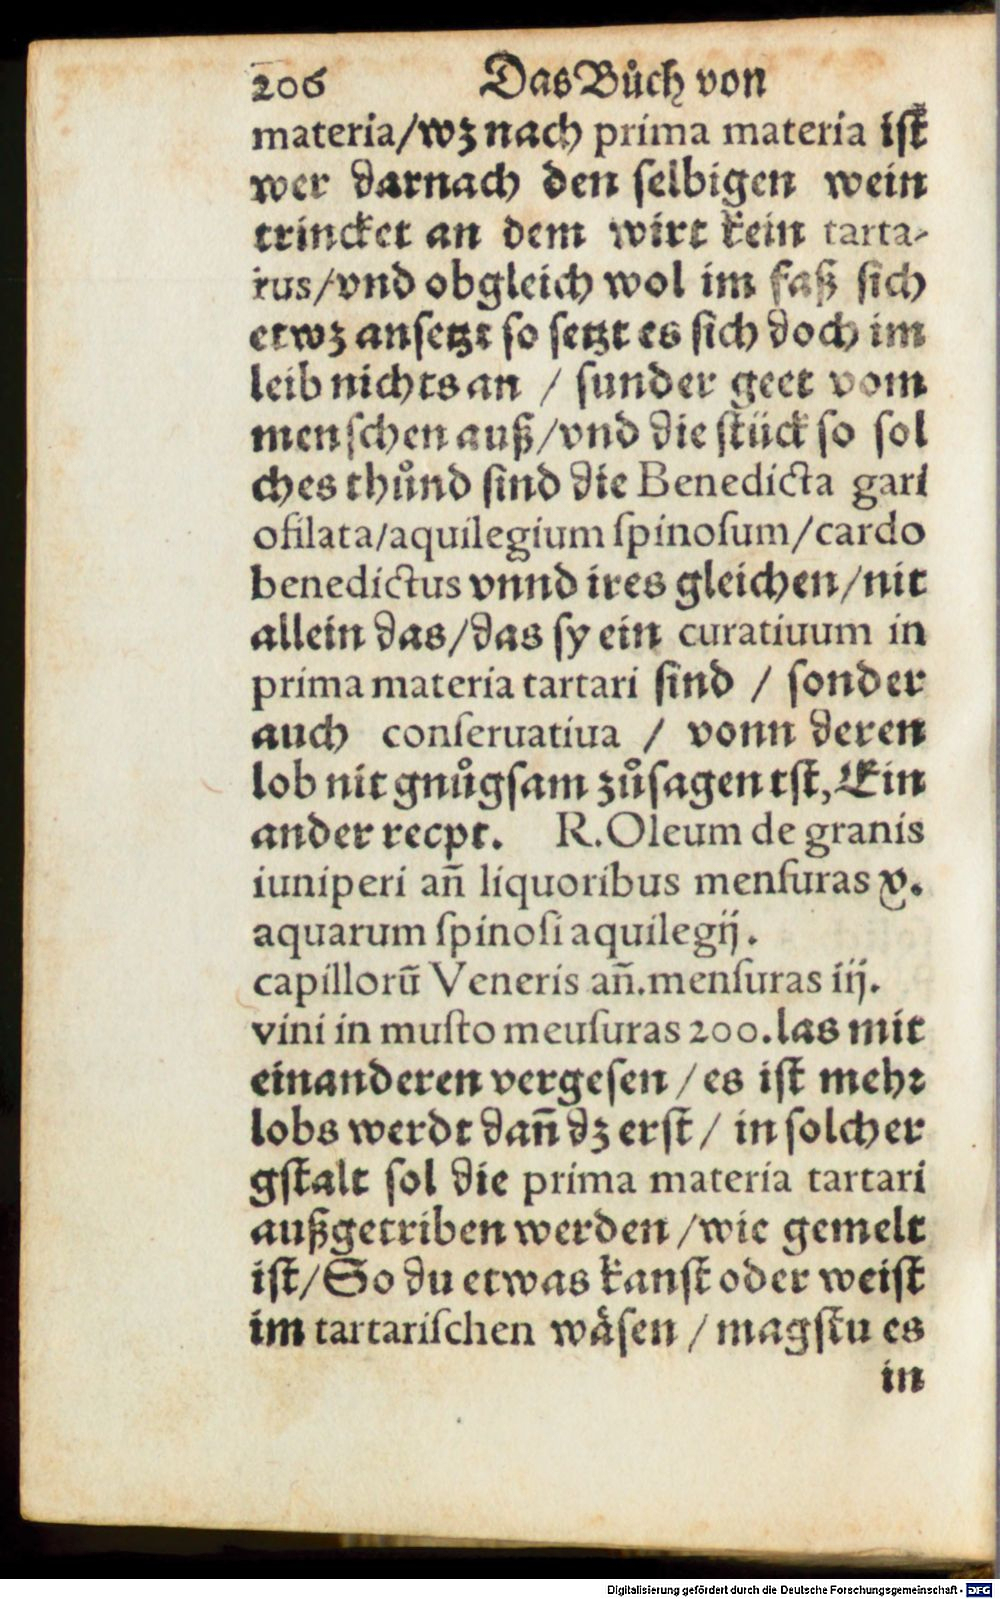 206 Das Bůch von
materia/wz nach prima materia ist
wer darnach den selbigen wein
trincket an dem wirt kein tarta-
rus/vnd obgleich wol im faß sich
etwz ansetzt so setzt es sich doch im
leib nichts an / sunder geet vom
menschen auß/vnd die stück so sol
ches thůnd sind die Benedicta gari
ofilata/aquilegium ſpinoſum/cardo
benedictus vnnd ires gleichen/nit
allein das/das sy ein curatiuum in
prima materia tartari sind / sonder
auch conſeruatiua / vonn deren
lob nit gnůgsam zůsagen tst, Ein
ander recpt. R. Oleum de granis
iuniperi añ liquoribus menſuras v.
aquarum ſpinoſi aquilegij.
capillorũ Veneris añ. menſuras iij.
vini in muſto meuſuras 200. las mit
einanderen vergesen / es ist mehr
lobs werdt dañ dz erst / in solcher
gstalt sol die prima materia tartari
außgetriben werden / wie gemelt
ist/ So du etwas kanst oder weist
im tartariſchen wäsen / magstu es
in
Digitalisierung gefördert durch die Deutsche Forschungsgemeinschaft - DFG